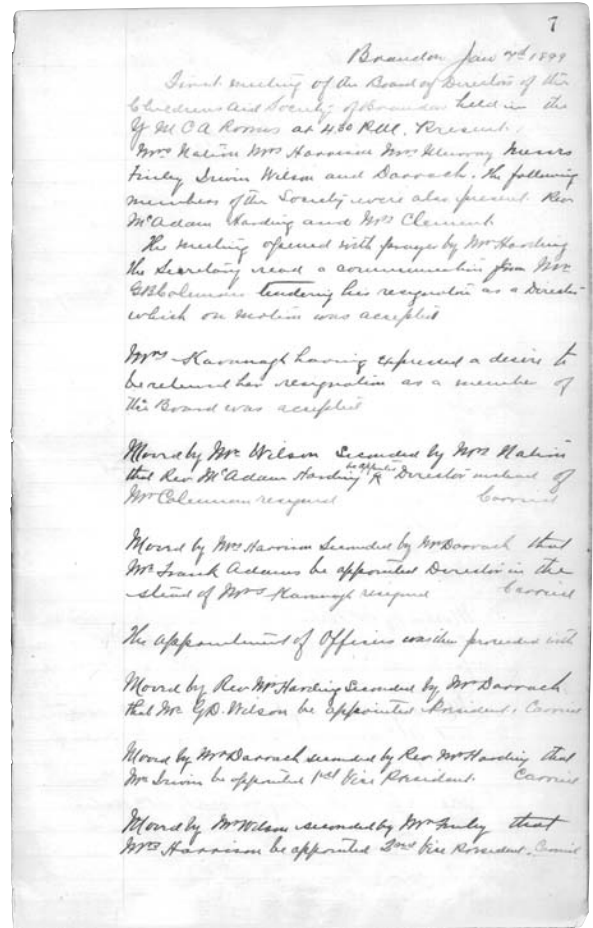 7
Brandon Jan 7th 1899
First meeting of the Board of Directors of the
Childrens Aid Society of Brandon held in the
Y M C A Rooms at 4.30 P.M. Present.
Mrs Nation Mrs Harrison Mrs Murray Messrs
Finly Irwin Wilson and Darrach. The following
members of the Society were also present. Rev
McAdam Harding and Mrs Clement.
The meeting opened with prayer by Mr Harding
The Secretary read a communication from Mr
G B Coleman tendering his resignation as a Director
which on motion was accepted
Mrs Kavanagh having expressed a desire to
be relieved her resignation as a member of
the Board was accepted
Moved by Mr Wilson Seconded by Mrs Nation
that Rev McAdam Harding be appointed Director instead of
Mr Coleman resigned Carried
Moved by Mrs Harrison Seconded by Mr Darrach that
Mr Frank Adams be appointed Director in the
stead of Mrs Kavanagh resigned Carried
The appointment of Officers was then proceeded with
Moved by Rev Mr Harding Seconded by Mr Darrach
that Mr G.D. Wilson be appointed President. Carried
Moved by Mr Darrach seconded by Rev Mr Harding that
Mr Irwin be appointed 1st Vice President. Carried
Moved by Mr Wilson seconded by Mr Finly that
Mrs Harrison be appointed 2nd Vice President. Carried